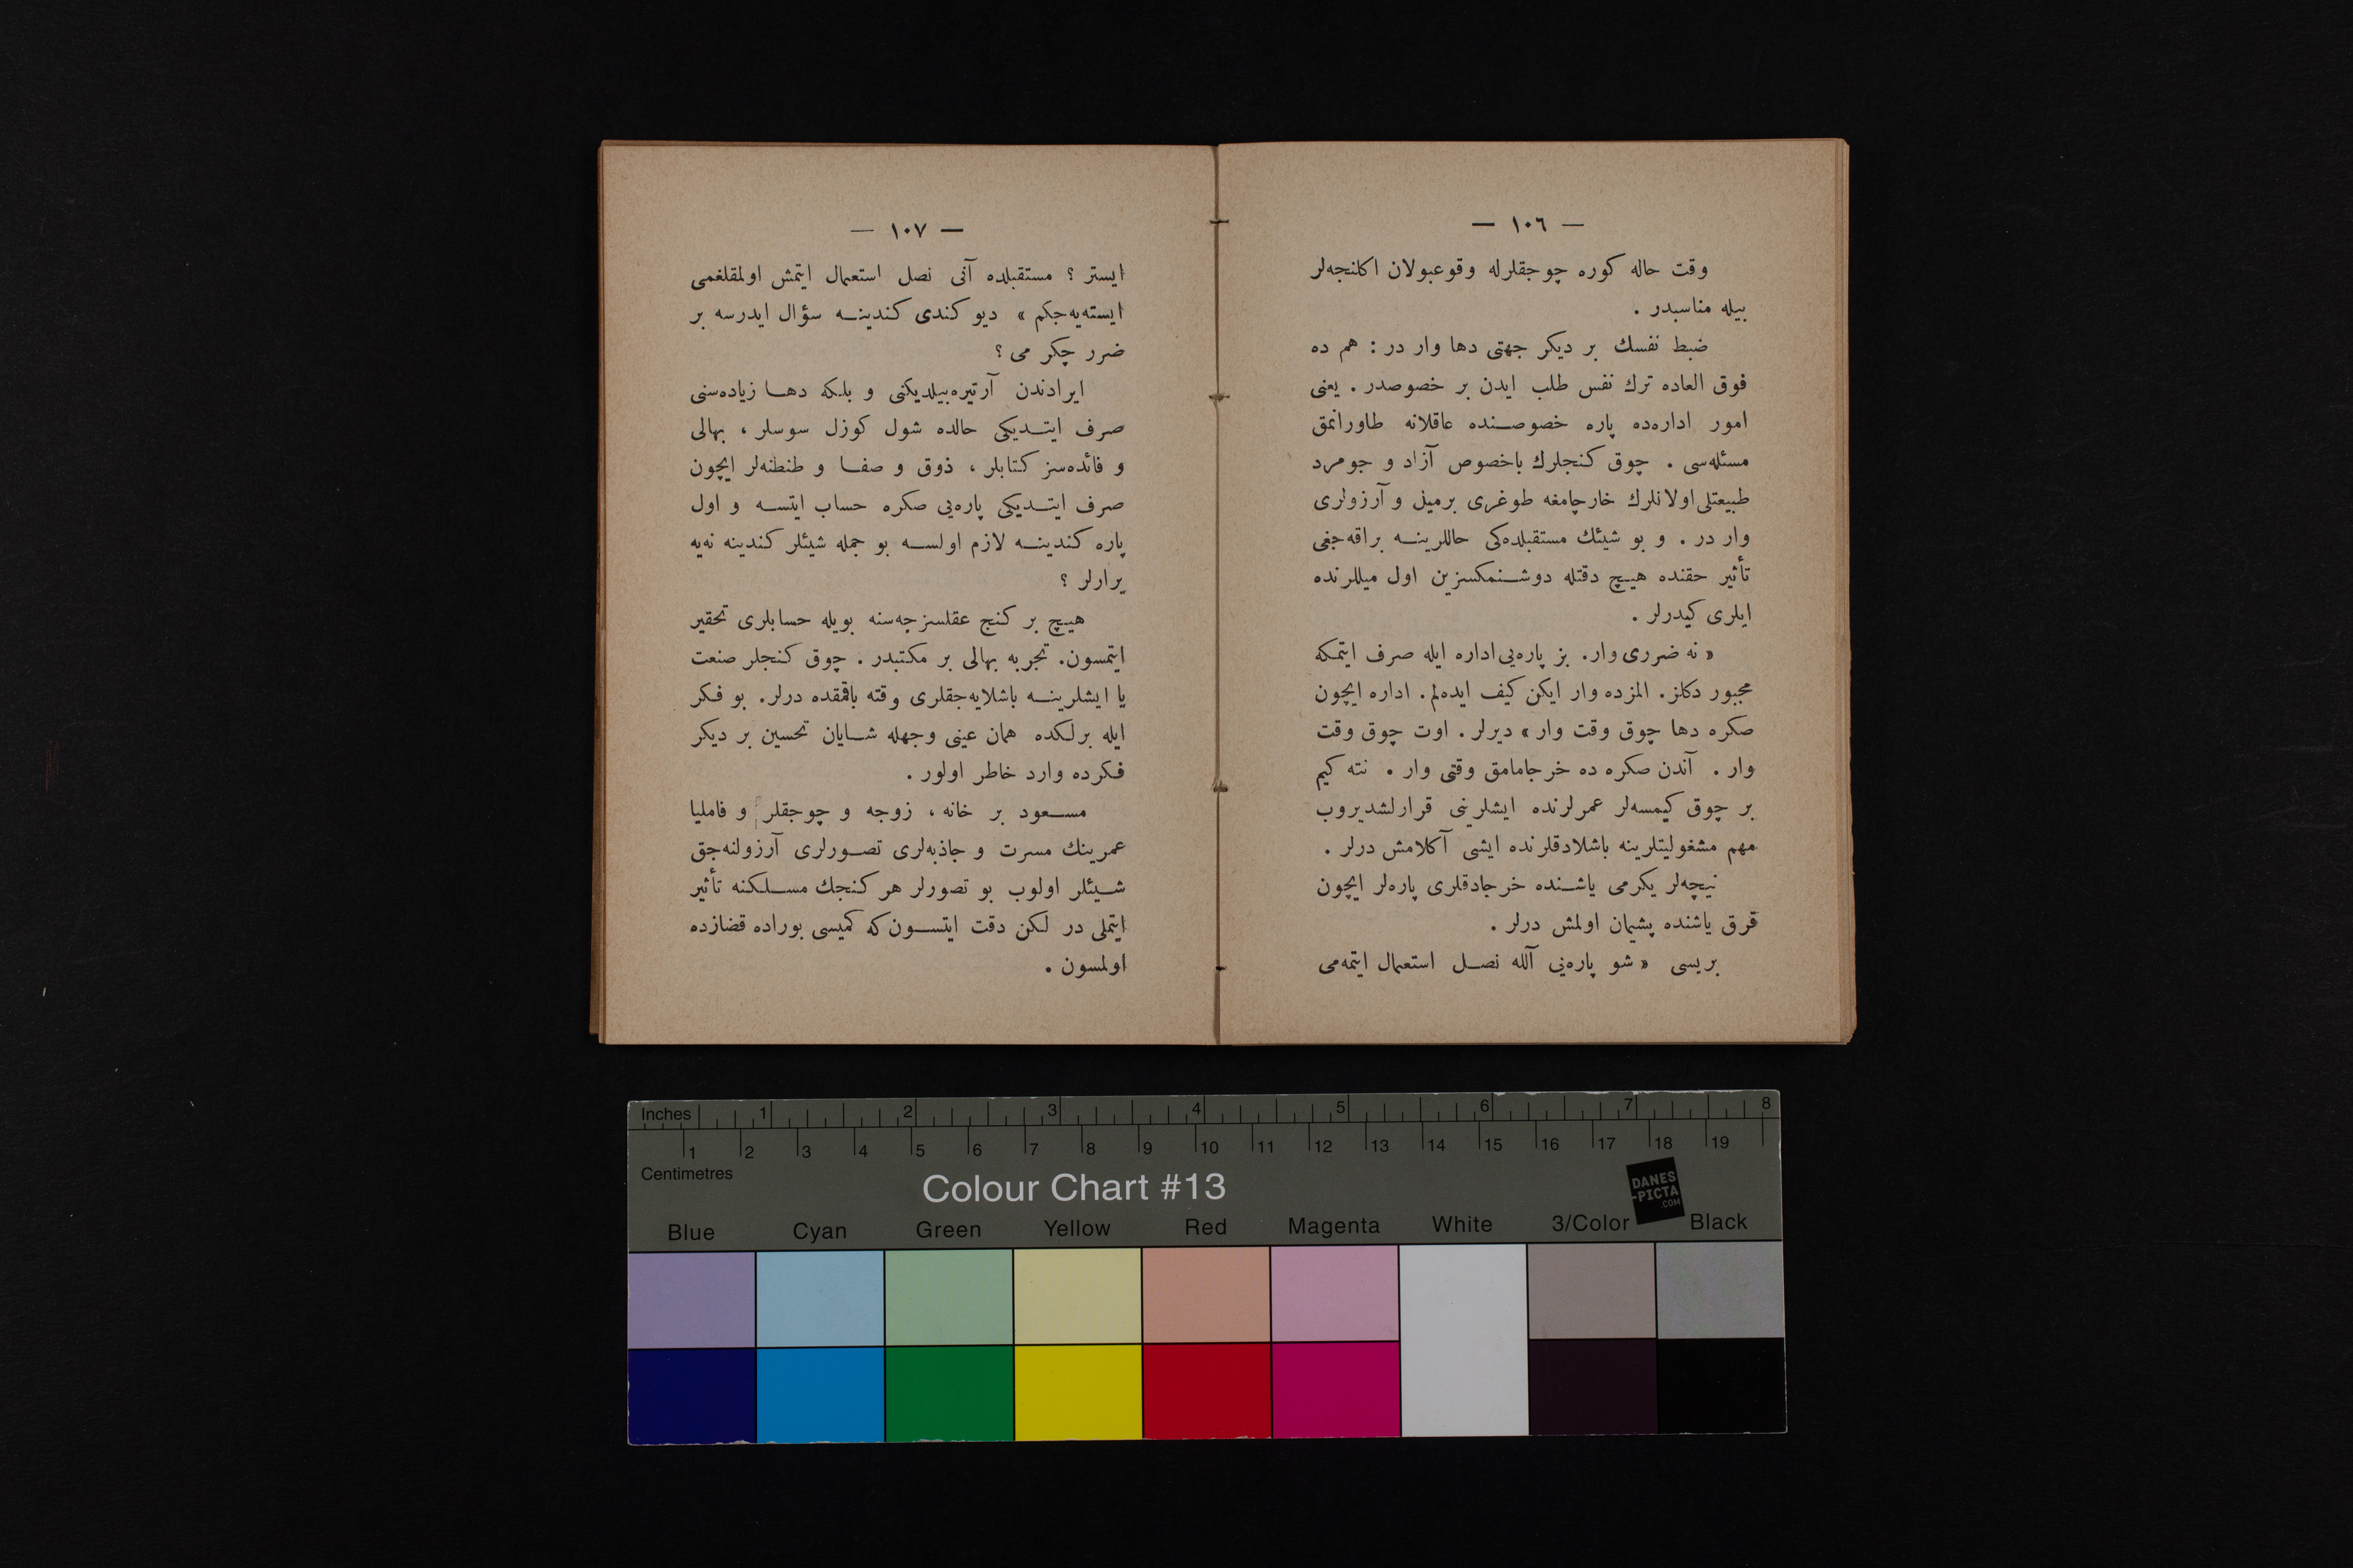 — ١٠٦ —
وقت حاله كوره چوجقلرله وقوعبولان اكلنجه‌لر
بيله مناسبدر .
ضبط نفسك بر ديكر جهتى دها وار در : هم ده
فوق العاده ترك نفس طلب ايدن بر خصوصدر . يعنى
امور اداره‌ده پاره خصوصنده عاقلانه طاورانمق
مسئله‌سى . چوق كنجلرك باخصوص آزاد و جومرد
طبيعتلى اولانلرك خارجامغه طوغرى برميل و آرزولرى
وار در . و بو شيئك مستقبلده‌كى حاللرينه براقه‌جغى
تأثير حقنده هيچ دقتله دوشنمكسزين اول ميللرنده
ايلرى كيدرلر .
« نه ضررى وار. بز پاره‌يى اداره ايله صرف ايتمكه
مجبور دكلز. المزده وار ايكن كيف ايده‌لم. اداره ايچون
صكره دها چوق وقت وار » ديرلر . اوت چوق وقت
وار . آندن صكره ده خرجامامق وقتى وار . نته كيم
بر چوق كيمسه‌لر عمرلرنده ايشلرينى قرارلشديروب
مهم مشغوليتلرينه باشلادقلرنده ايشى آكلامش درلر .
نيچه‌لر يكرمى ياشنده خرجادقلرى پاره‌لر ايچون
قرق ياشنده پشيمان اولمش درلر .
بريسى « شو پاره‌يى آلله نصل استعمال ايتمه‌مى
— ١٠٧ —
ايستر ؟ مستقبلده آنى نصل استعمال ايتمش اولمقلغمى
ايسته‌يه‌جكم » ديو كندى كندينه سؤال ايدرسه بر
ضرر چكر مى ؟
ايرادندن آرتيره‌بيلديكنى و بلكه دها زياده‌سنى
صرف ايتديكى حالده شول كوزل سوسلر ، بهالى
و فائده‌سز كتابلر ، ذوق و صفا و طنطنه‌لر ايچون
صرف ايتديكى پاره‌يى صكره حساب ايتسه و اول
پاره كندينه لازم اولسه بو جمله شيئلر كندينه نه‌يه
يرارلر ؟
هيچ بر كنج عقلسزجه‌سنه بويله حسابلرى تحقير
ايتمسون. تجربه بهالى بر مكتبدر . چوق كنجلر صنعت
يا ايشلرينه باشلايه‌جقلرى وقته باقمقده درلر. بو فكر
ايله برلكده همان عينى وجهله شايان تحسين بر ديكر
فكرده وارد خاطر اولور .
مسعود بر خانه ، زوجه و چوجقلر و فامليا
عمرينك مسرت و جاذبه‌لرى تصورلرى آرزولنه‌جق
شيئلر اولوب بو تصورلر هر كنجك مسلكنه تأثير
ايتملى در لكن دقت ايتسون كه كميسى بوراده قضازده
اولمسون .
Inches 1 2 3 4 5 6 7 8
1 2 3 4 5 6 7 8 9 10 11 12 13 14 15 16 17 18 19
Centimetres
Colour Chart #13
DANES
-PICTA
.COM
Blue Cyan Green Yellow Red Magenta White 3/Color Black